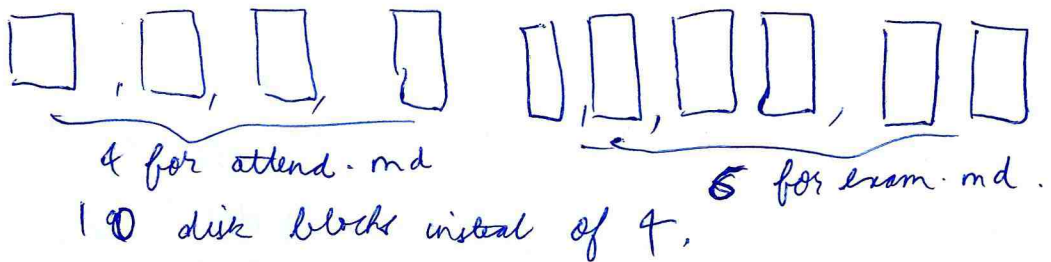 4 for attend.md
6 for exam.md.
10 disk blocks insteal of 4.